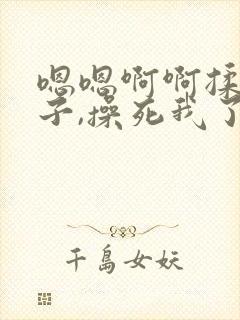 嗯嗯啊啊揉
子,操死我了
千岛女妖